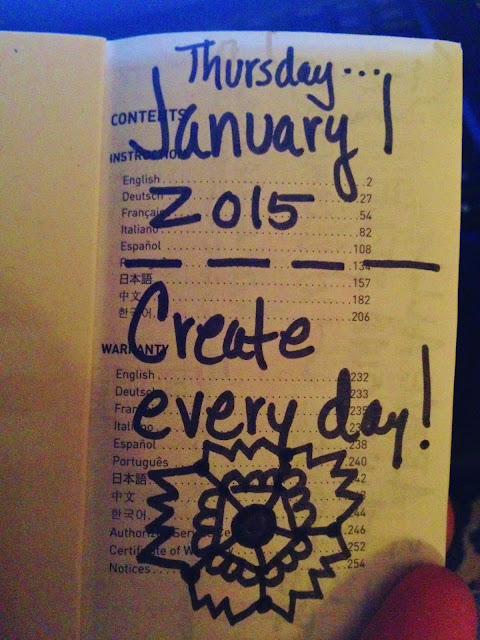 Thursday...
January 1
2015
Create
every day!
CONTENTS
English 2
Deutsch 27
Français 54
Italiano 82
Español 108
134
日本語 157
中文 182
한국어 206
WARRANTY
English 232
Deutsch 233
235
Italiano
Español 238
Português 240
日本語
中文
한국어 244
Authorized Service 246
Certificate of Warranty 252
Notices 254